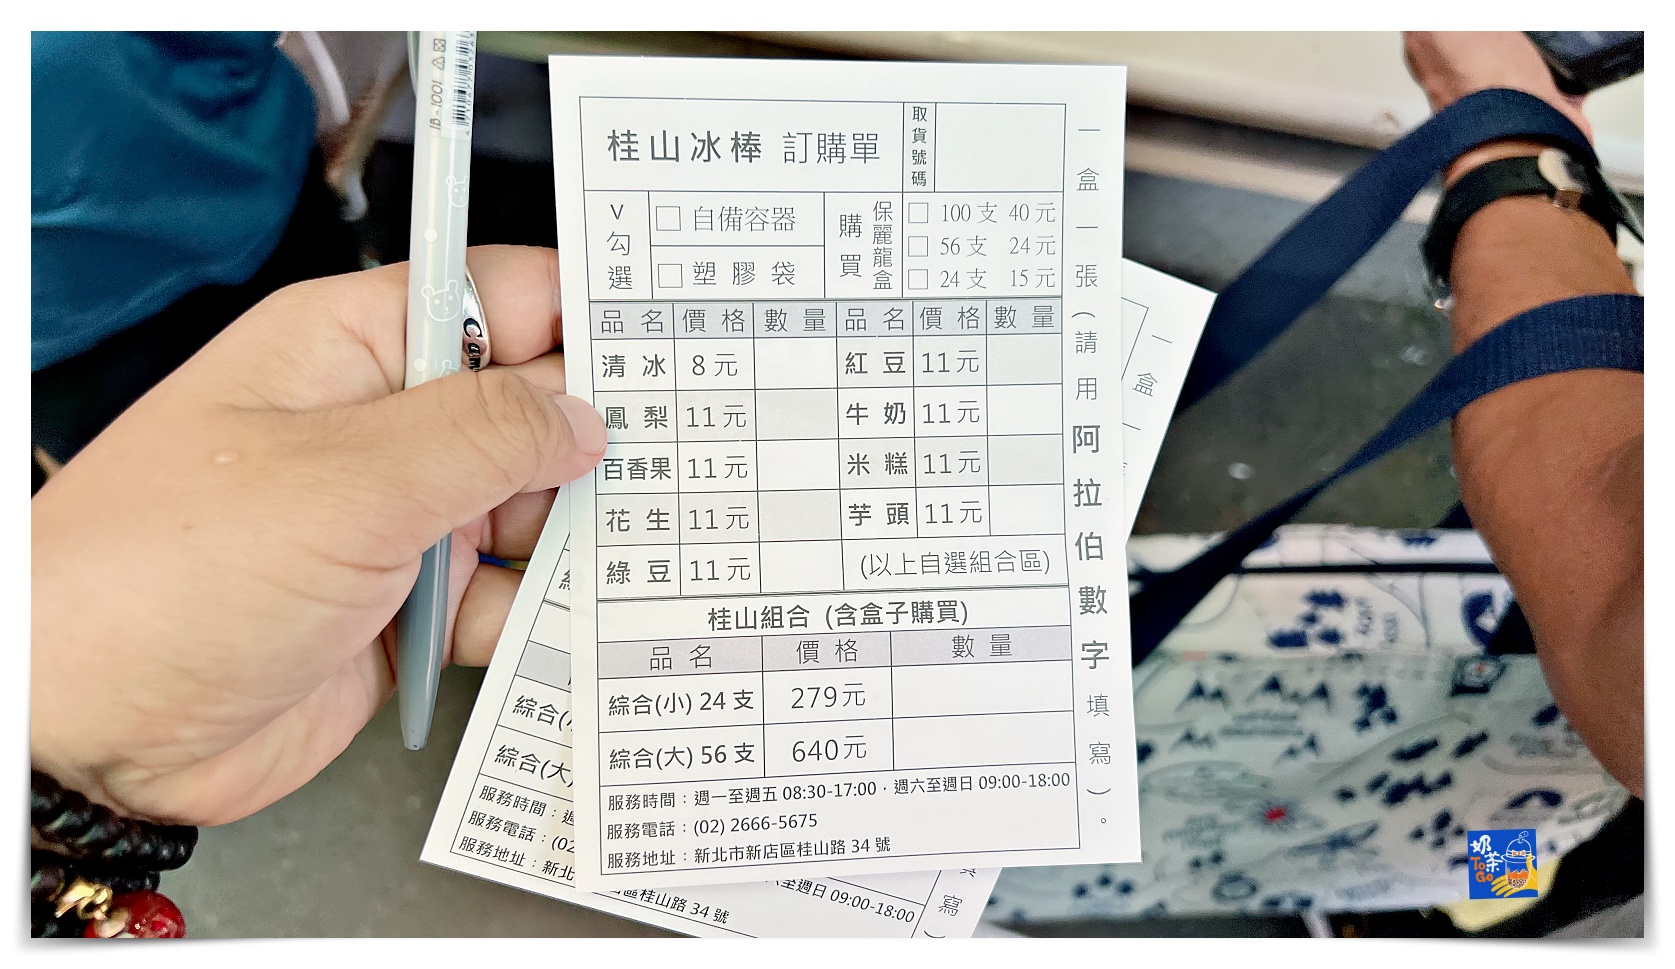 IB-1001
Cam
桂山冰棒 訂購單
取貨號碼
V勾選
□ 自備容器
□ 塑膠袋
購買
保麗龍盒
□ 100支 40元
□ 56支 24元
□ 24支 15元
品名 價格 數量 品名 價格 數量
清冰 8元 紅豆 11元
鳳梨 11元 牛奶 11元
百香果 11元 米糕 11元
花生 11元 芋頭 11元
綠豆 11元 (以上自選組合區)
桂山組合 (含盒子購買)
品名 價格 數量
綜合(小) 24支 279元
綜合(大) 56支 640元
服務時間：週一至週五 08:30-17:00，週六至週日 09:00-18:00
服務電話：(02) 2666-5675
服務地址：新北市新店區桂山路 34 號
一盒一張(請用阿拉伯數字填寫)。
一盒一
綜合(
綜合(大)
服務時間：週
六至週日 09:00-18:00
服務電話：(02
服務地址：新北
區桂山路 34 號
寫)
奶茶
To
Go